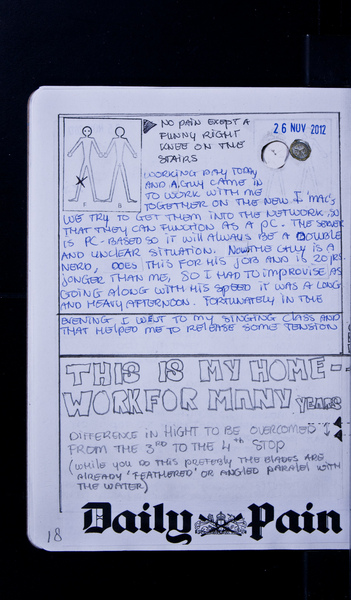 NO PAIN EXEPT A
FUNNY RIGHT
KNEE ON THE
STAIRS
26 NOV 2012
F B
WORKING DAY TODAY
AND A GUY CAME IN
TO WORK WITH ME
TOGETHER ON THE NEW I'MAC'S
WE TRY TO GET THEM INTO THE NETWORK SO
THAT THEY CAN FUNCTION AS A PC. THE SERVER
IS PC-BASED SO IT WILL ALWAYS BE A DOUBLE
AND UNCLEAR SITUATION. NOW THE GUY IS A
NERD, DOES THIS FOR HIS JOB AND IS 20 YRS.
YONGER THAN ME, SO I HAD TO IMPROVISE AS
GOING ALONG WITH HIS SPEED IT WAS A LONG
AND HEAVY AFTERNOON. FORTUNATELY IN THE
EVENING I WENT TO MY SINGING CLASS AND
THAT HELPED ME TO RELEASE SOME TENSION
THIS IS MY HOME-
WORK FOR MANY YEARS
DIFFERENCE IN HIGHT TO BE OVERCOMED
FROM THE 3RD TO THE 4TH STOP
(WHILE YOU DO THIS PREFEBLY THE BLADES ARE
ALREADY 'FEATHERED' OR ANGLED PARALEL WITH
THE WATER)
18
Daily Pain